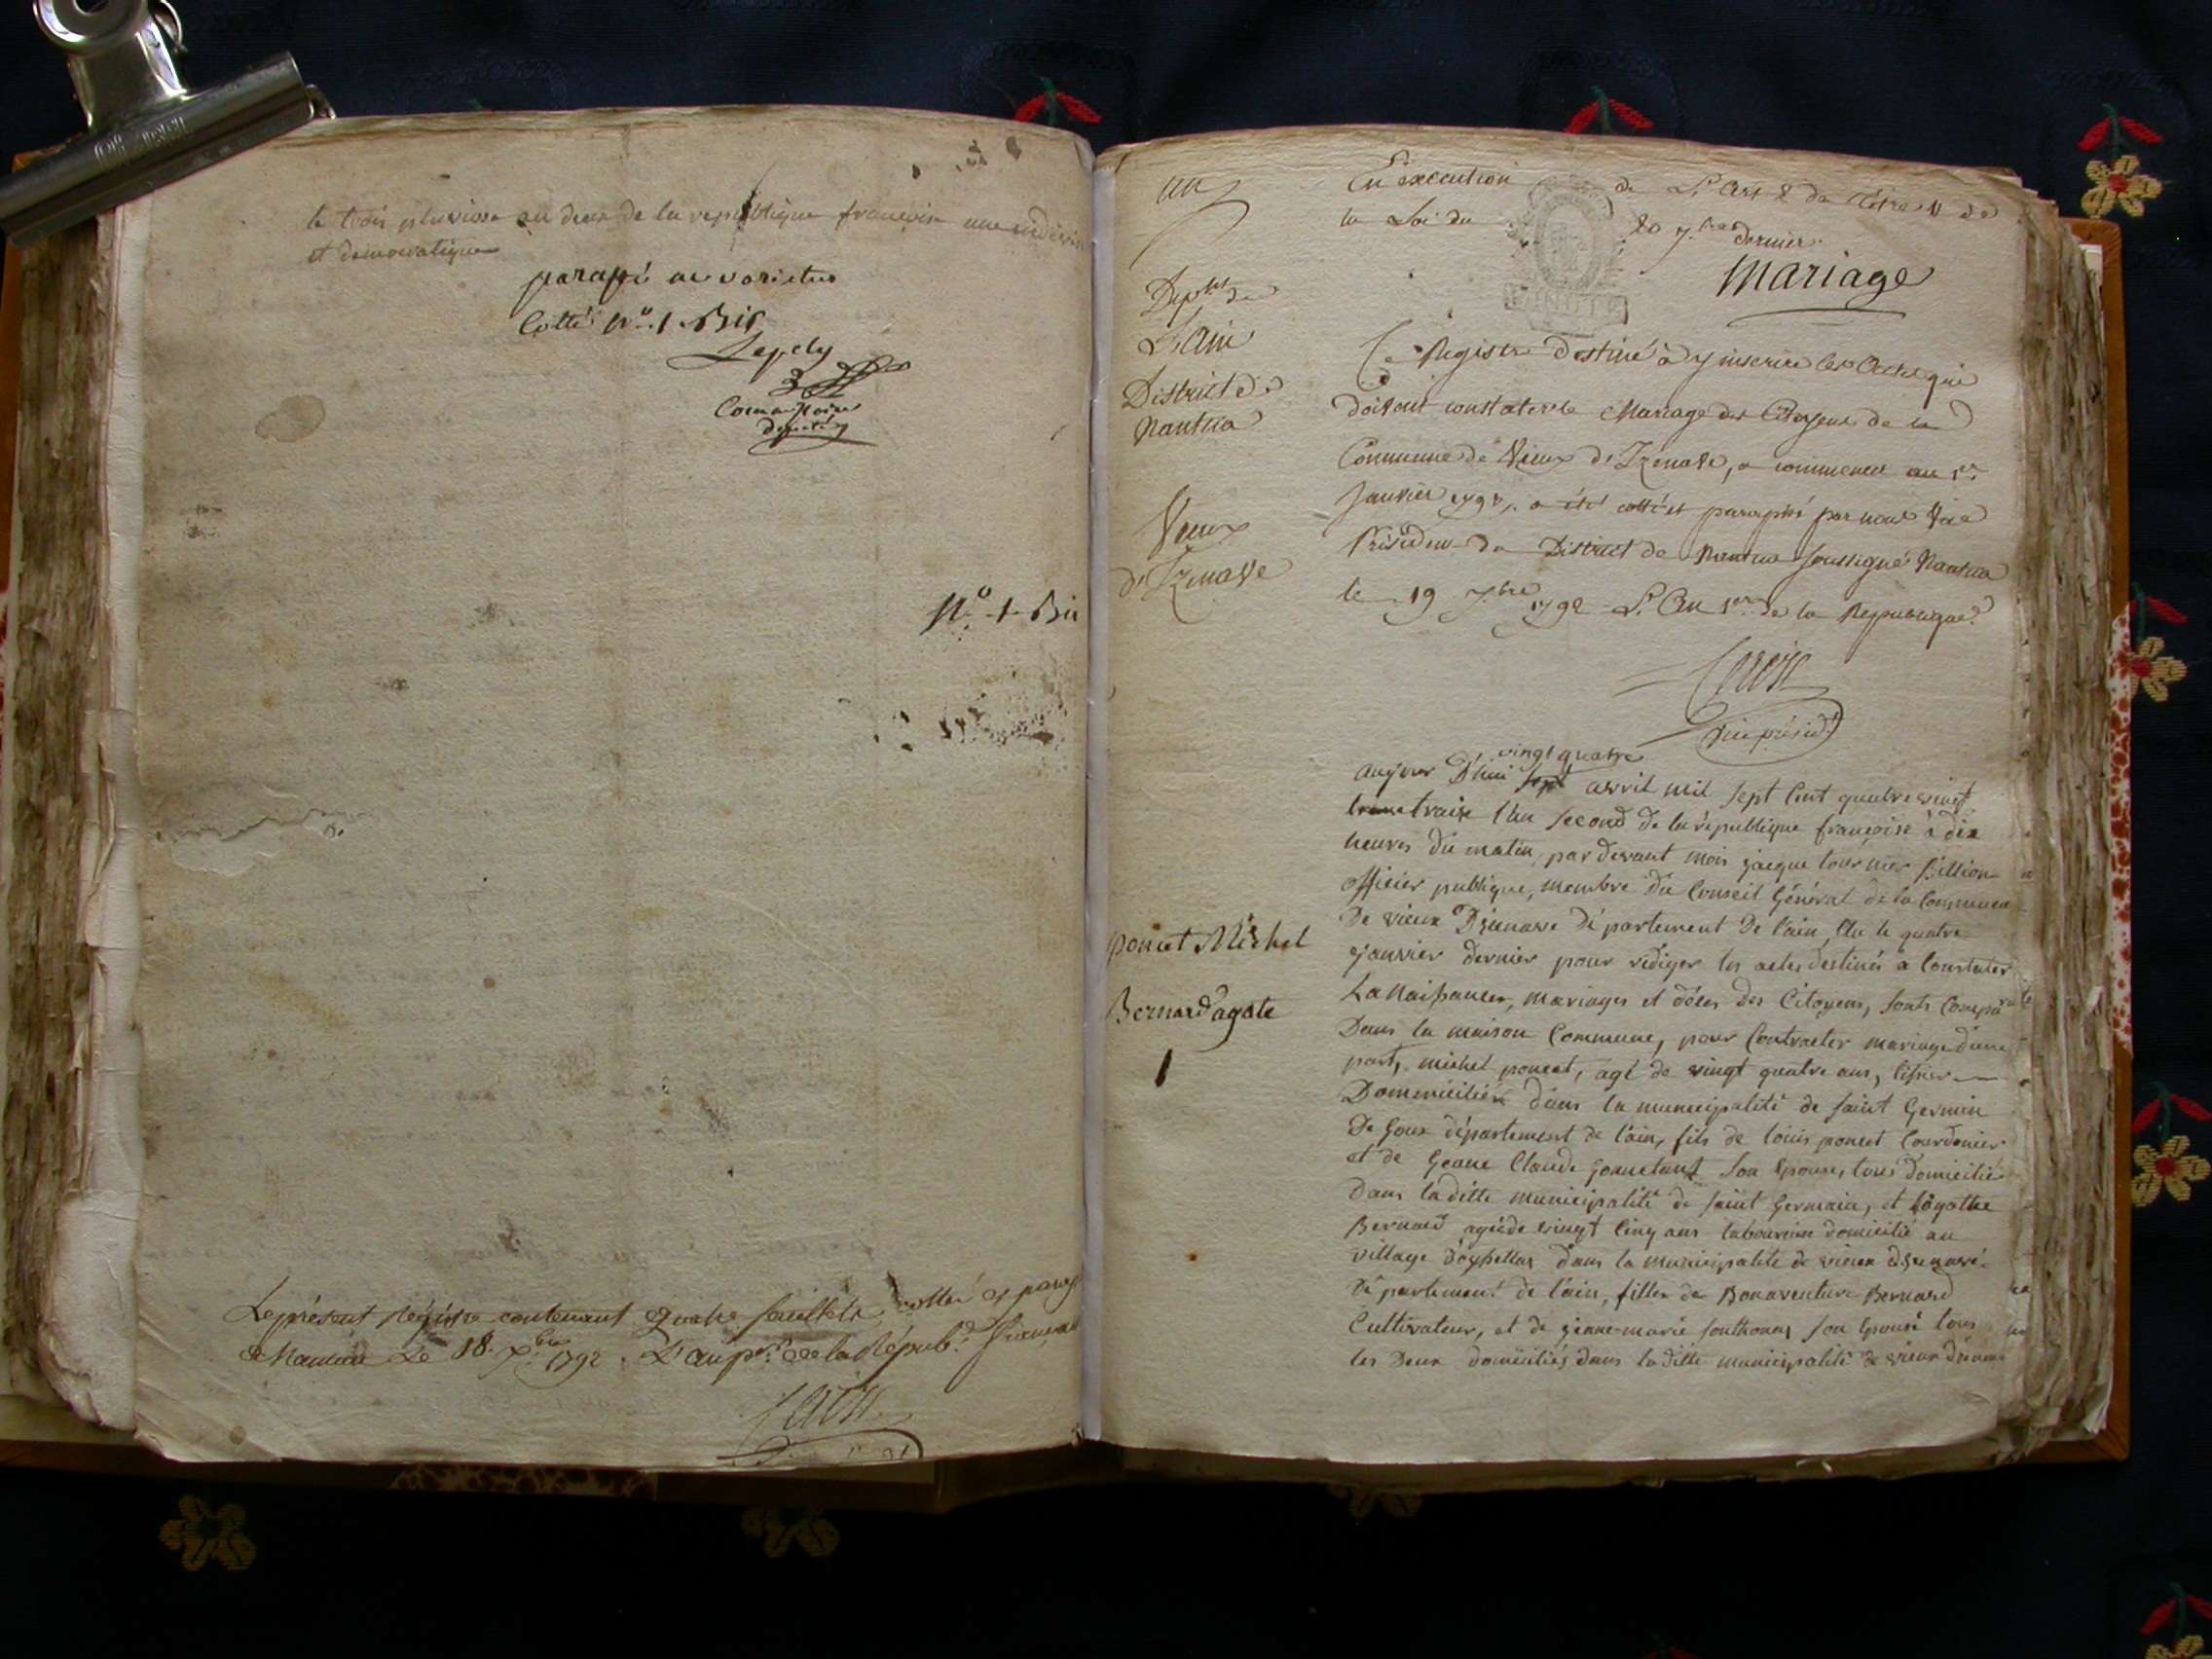 le trois pluviose an deux de la republique francoise une indivisi
et democratique
parafé ne varietur
Cotté N.º 1. Bis
Commissaire
député
N.º 1. Bis
Le présent Régistre contenant quatre feuillets, cotté et paraph
à Nantua Le 18. Xbre 1792. L'an per. de la Républ.
un
En execution de L'Art 2 du Titre de
la Loi du 20 7.bre dernier.
Mariage
Depmt de
L'Ain
District de
Nantua
Vieux
d'Izenave
Ce Registre destiné à y inscrire les Actes qui
doivent constater le Mariage des Citoyens de la
Commune de Vieux d'Izenave, a commencer au 1er
Janvier 1793, a été cotté et paraphé par nous Vice
Président du District de Nantua soussigné Nantua
le 19 Xbre 1792 L'An 1er de la Republique
Vice présidt
vingt quatre
aujour D'hui sept avril mil sept Cent quatre vingt
traise l'an second de la république françoise à dix
heures du matin, par devant mois jacque tournier Billion
officier publique, membre du Conseil Général de la Commune
De vieux D'izenave département De l'ain, élu le quatre
janvier dernier pour rédiger les actes destinés a Constater
La Naissances, mariages et décès des Citoyens, sonts Comparu
Dans la maison Commune, pour Contracter mariage d'une
part, michel poncet, agé de vingt quatre ans, tisier
Domicilié dans la municipalité de saint Germin
De Joux département de l'ain, fils de louis poncet Courdonier
et de Geane Claude son Epouse, tous domiciliés
Dans la ditte municipalité de saint Germain, et agathe
Bernard agée de vingt Cinq ans domicilié au
village d'oysellas dans la municipalité de vieux d'izenave
département de l'ain, fille de Bonaventure Bernard
Cultivateur, et de jeanne-marie Southonax son Epouse tous
les Deux domiciliés dans la ditte municipalité de vieux d'izenav
poncet Michel
Bernard agate
1